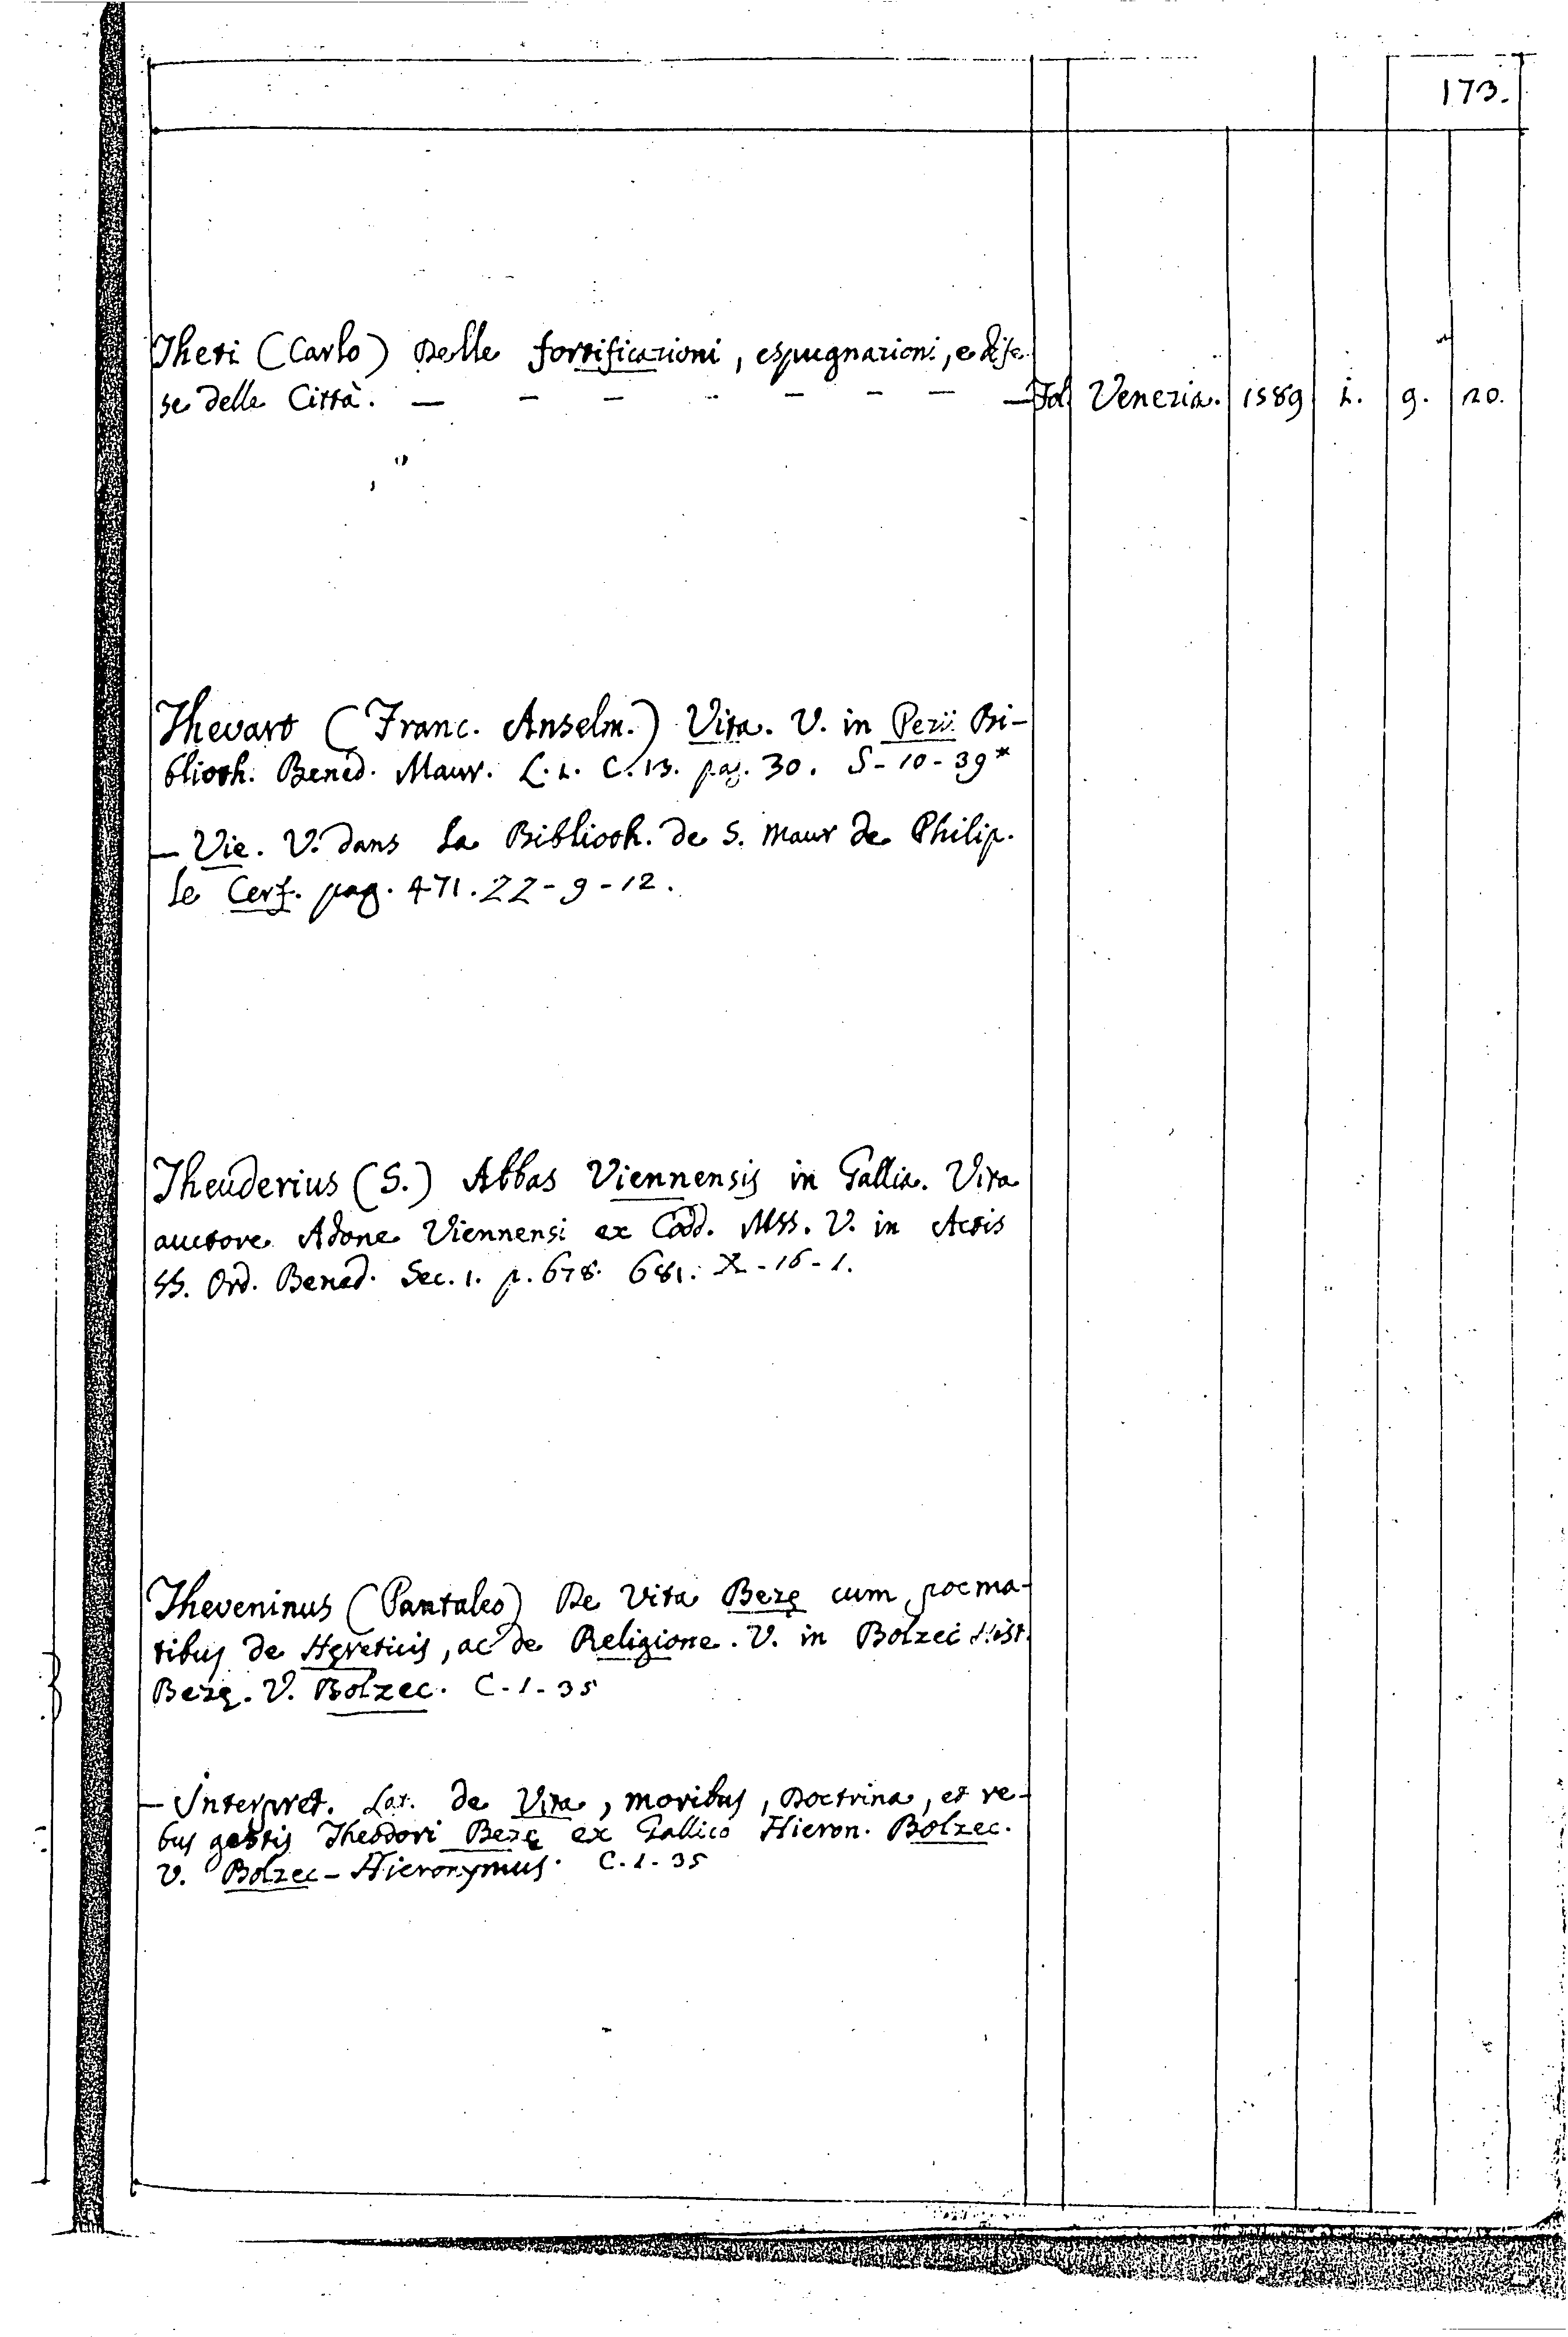 173.
Theti (Carlo) Delle fortificazioni, espugnazioni, e dife
se delle Città. — - - - - - - — Fol. Venezia. 1589 L. 9. 20.
Thevart (Franc. Anselm.) Vita. V. in Pezii Bi-
blioth. Bened. Maur. L. 2. C. 13. pag. 30. S-10-39*
— Vie. V. dans la Biblioth. de S. Maur de Philip.
le Cerf. pag. 471. ZZ-9-12.
Theuderius (S.) Abbas Viennensis in Gallia. Vita
auctore Adone Viennensi ex Codd. MSS. V. in Actis
SS. Ord. Bened. Sec. 1. p. 678. 681. X-16-1.
Theveninus (Pantaleo) De Vita Bezę cum poema-
tibus de Hęreticis, ac de Religione. V. in Bolzec Hist.
Bezę. V. Bolzec. C-1-35
— Interpret. Lat. de Vita, moribus, Doctrina, et re-
bus gestis Theodori Bezę ex Gallico Hieron. Bolzec.
V. Bolzec - Hieronymus. C-1-35